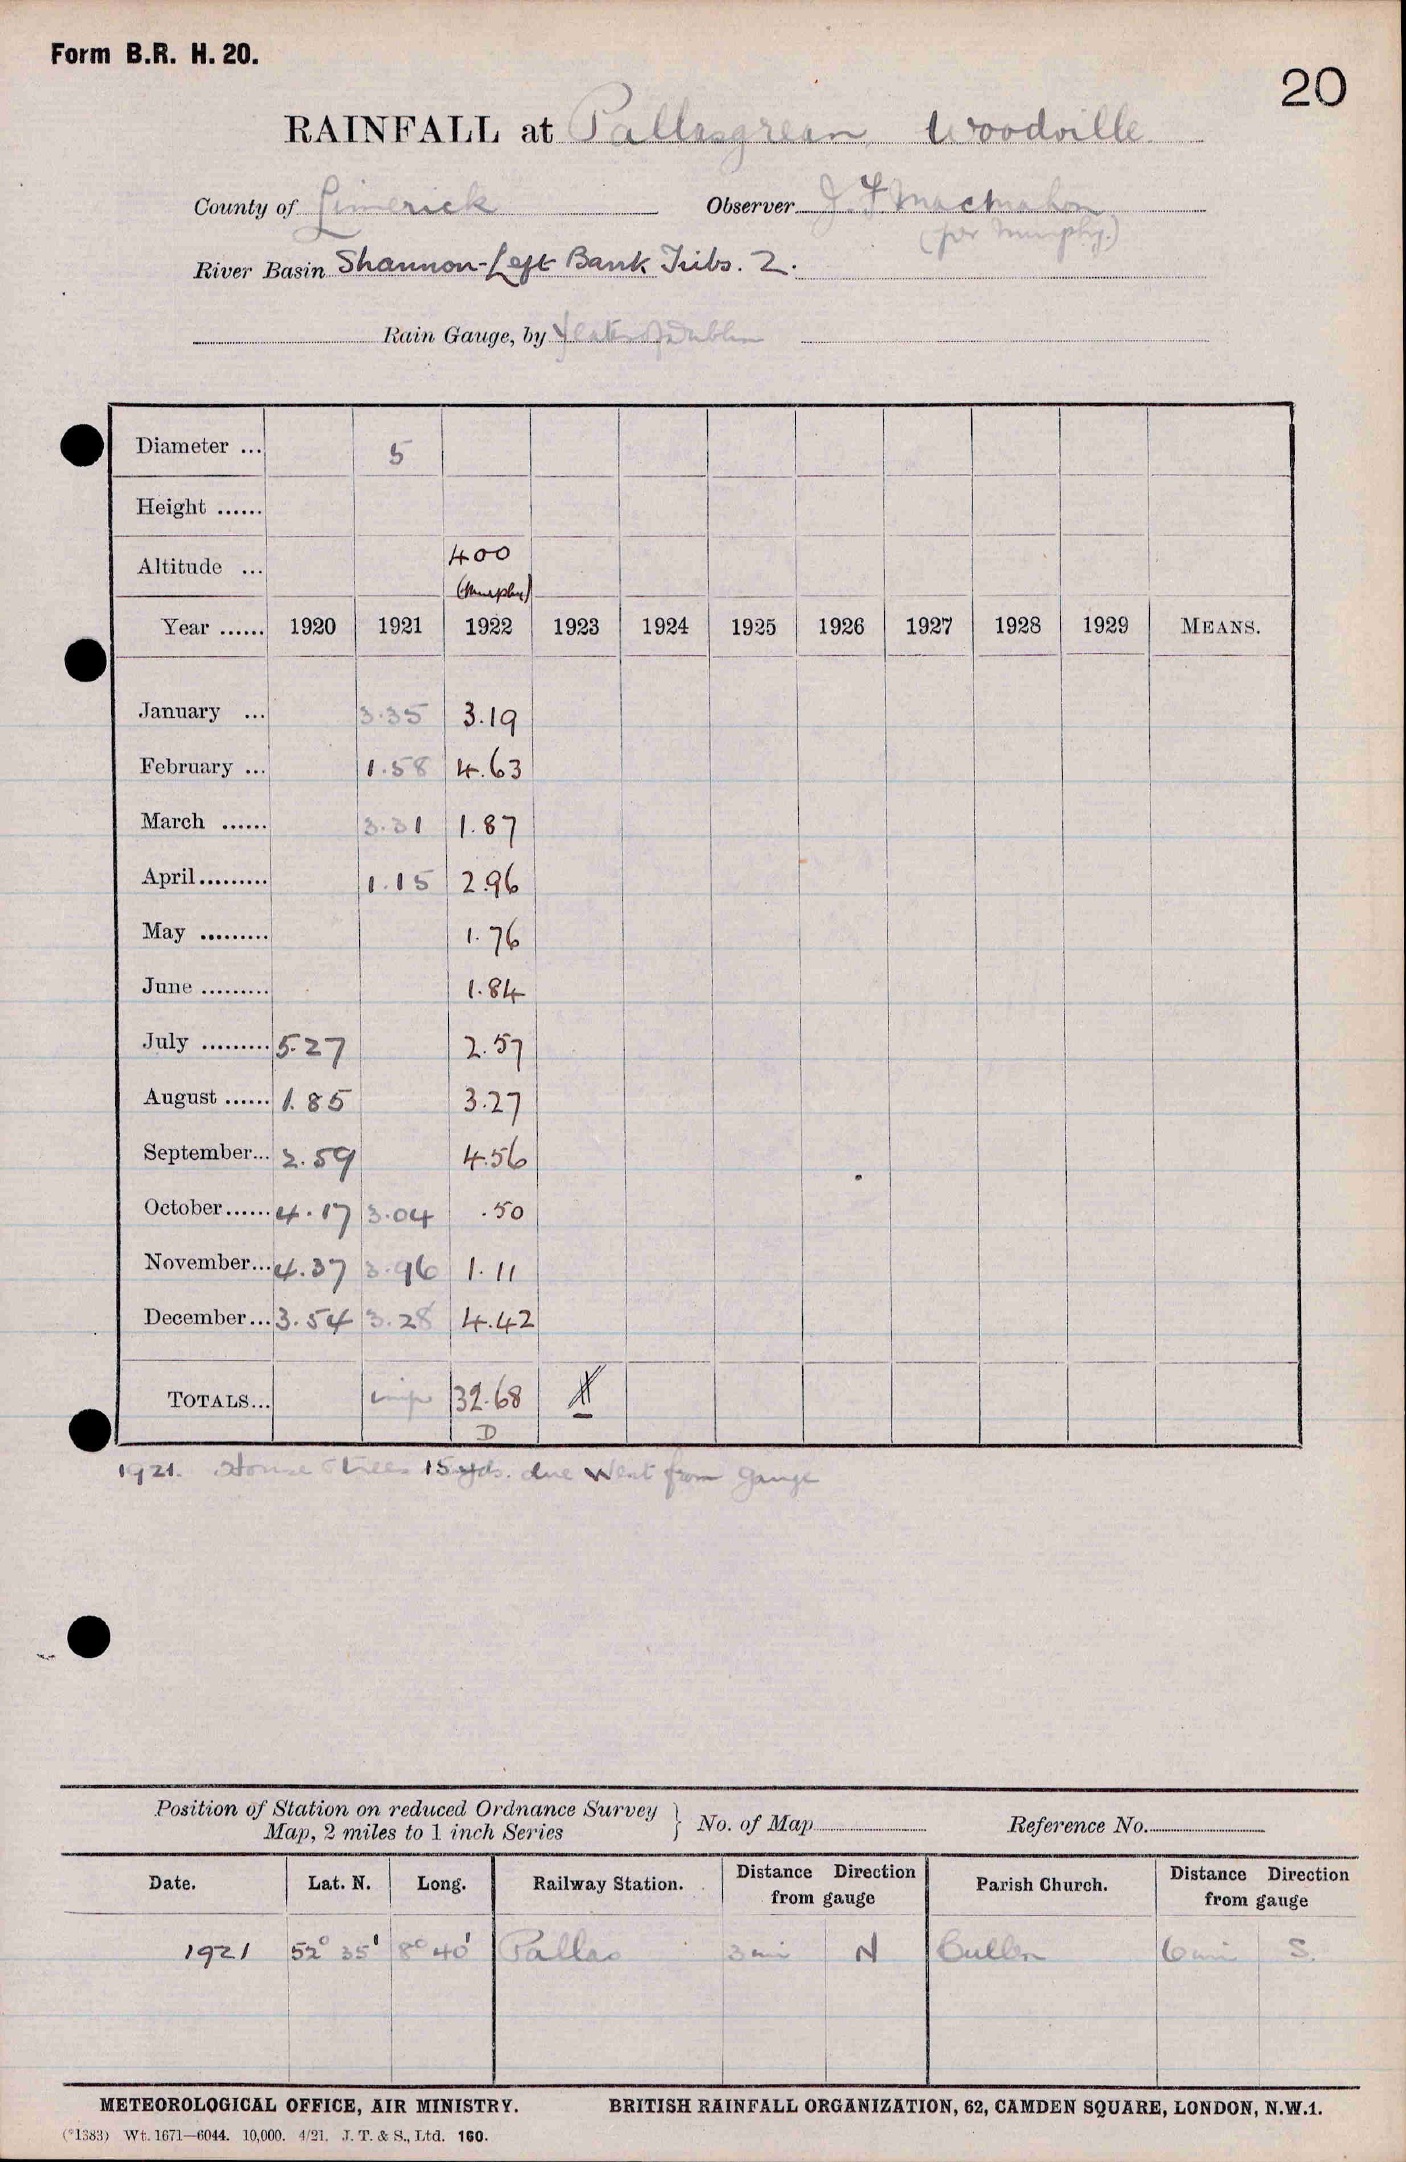 Form B.R. H. 20.
20
RAINFALL at Pallasgrean, Woodville.
County of Limerick Observer J. F. MacMahon
(for Murphy.)
River Basin Shannon-Left Bank Tribs. 2.
Rain Gauge, by Yeates of Dublin
Diameter ... 5
Height ......
Altitude ... 400
(Murphy)
Year ...... 1920 1921 1922 1923 1924 1925 1926 1927 1928 1929 MEANS.
January ... 3.35 3.19
February ... 1.58 4.63
March ...... 3.31 1.87
April......... 1.15 2.96
May ......... 1.76
June ......... 1.84
July ......... 5.27 2.57
August ...... 1.85 3.27
September... 2.59 4.56
October...... 4.17 3.04 .50
November... 4.37 3.96 1.11
December... 3.54 3.28 4.42
TOTALS... imp 32.68
D
1921. House & trees 15 yds. due West from gauge
Position of Station on reduced Ordnance Survey
Map, 2 miles to 1 inch Series } No. of Map Reference No.
Date. Lat. N. Long. Railway Station. Distance Direction from gauge Parish Church. Distance Direction from gauge
1921 52° 35' 8° 40' Pallas 3 mi N Cullen 6 mi S.
METEOROLOGICAL OFFICE, AIR MINISTRY. BRITISH RAINFALL ORGANIZATION, 62, CAMDEN SQUARE, LONDON, N.W.1.
(*1383) Wt. 1671—6044. 10,000. 4/21. J. T. & S., Ltd. 160.